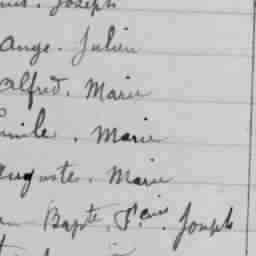 Joseph
Ange. Julien
Alfred. Marie
Emile. Marie
Auguste. Marie
Bapte. Fçois. Joseph